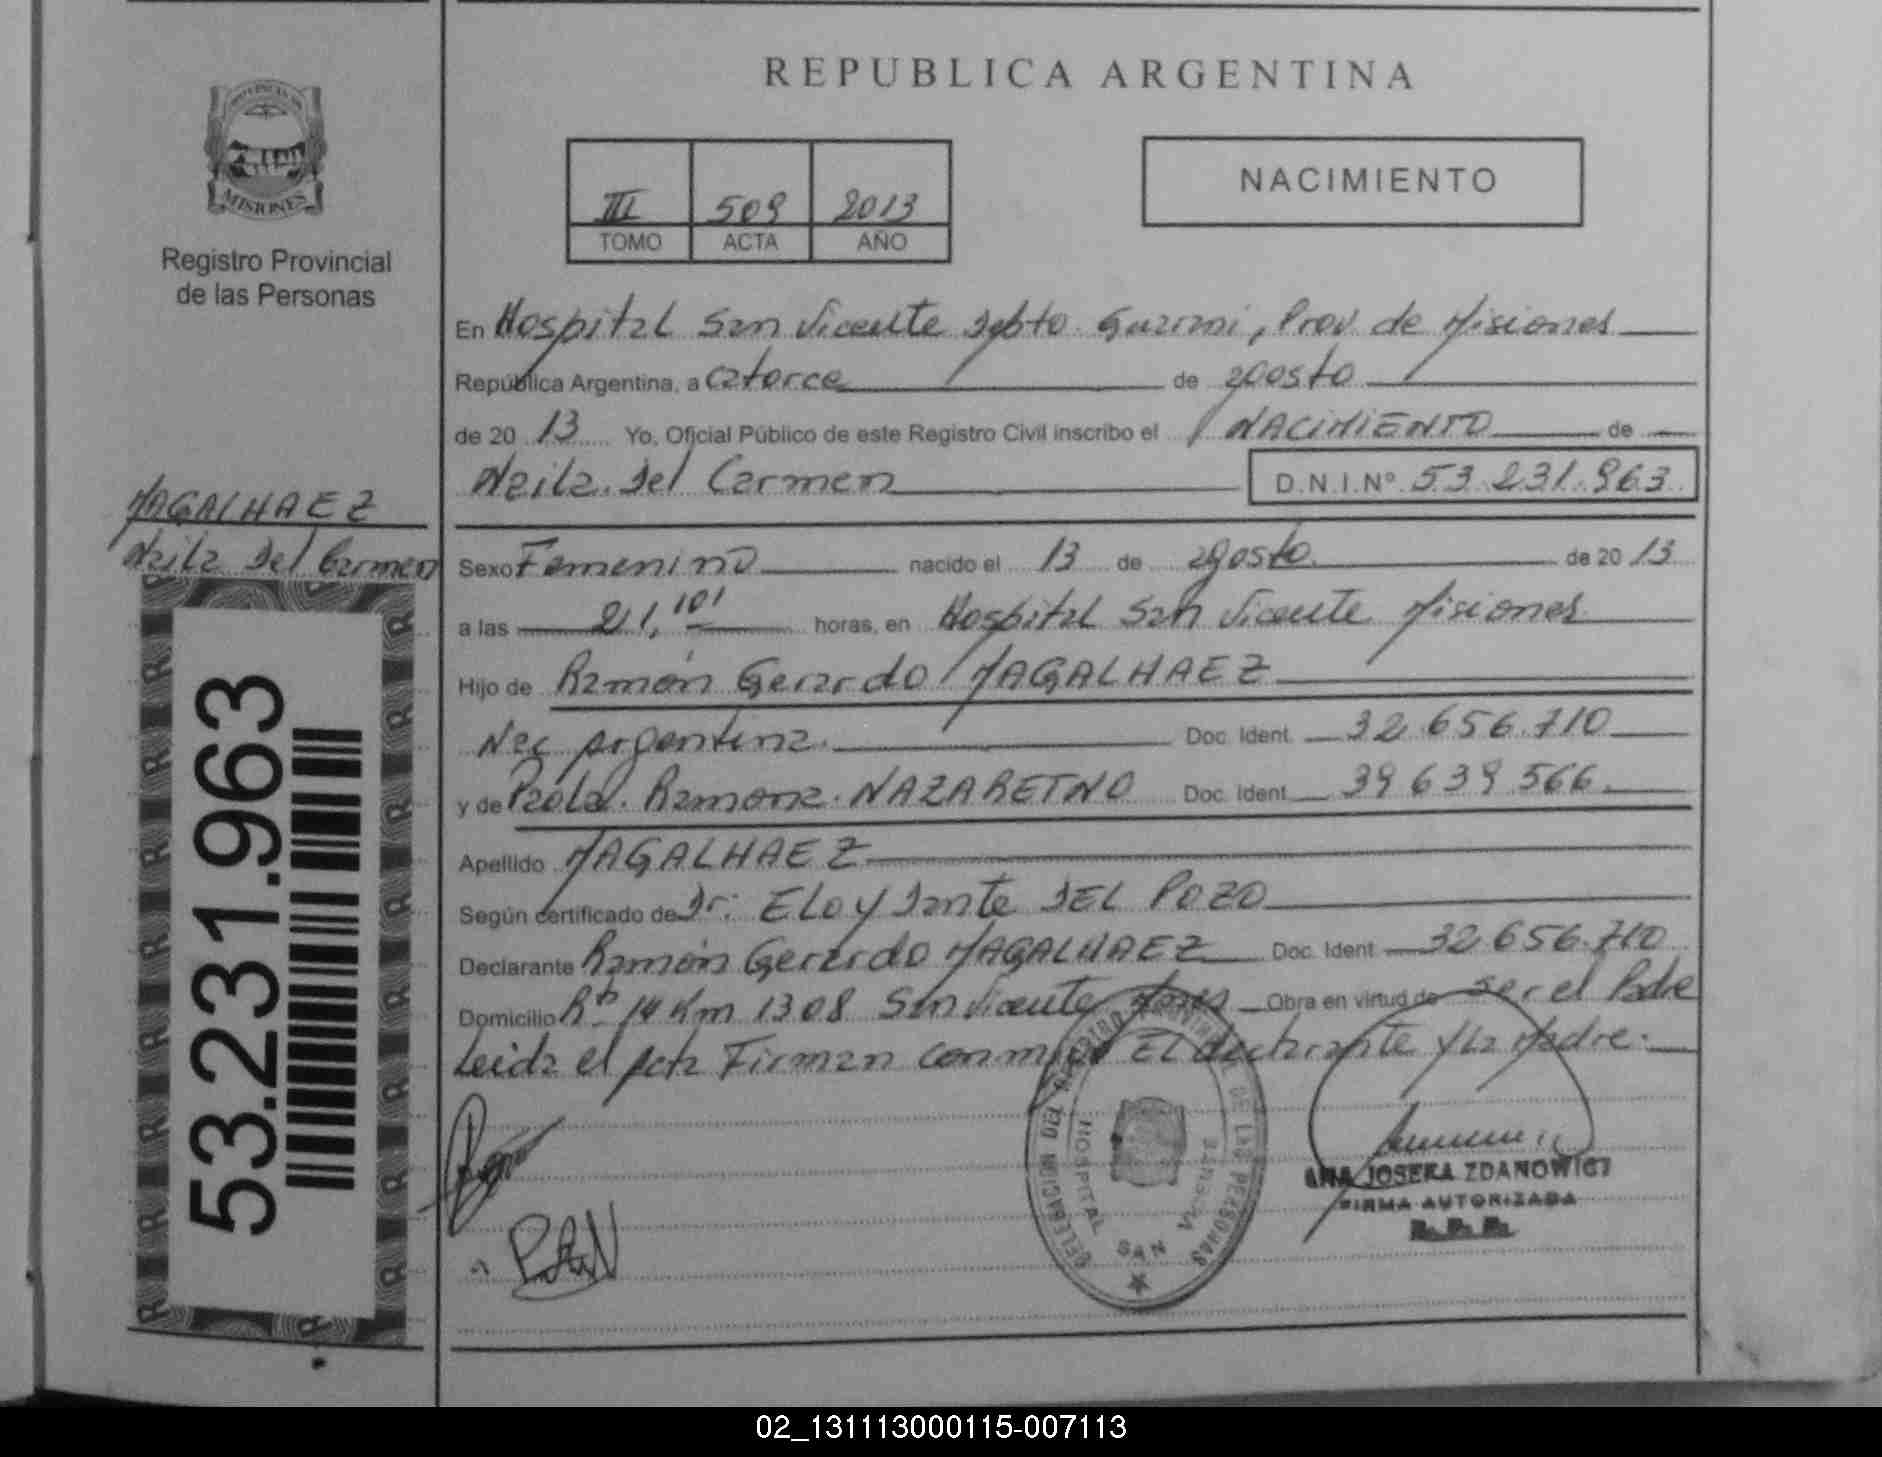 REPUBLICA ARGENTINA
MISIONES
Registro Provincial
de las Personas
III 509 2013
TOMO ACTA AÑO
NACIMIENTO
En Hospital San Vicente Depto. Guarani, Prov. de Misiones
República Argentina, a catorce de agosto
de 20 13 Yo, Oficial Público de este Registro Civil inscribo el NACIMIENTO de
Naila Del Carmen D.N.I.Nº 53.231.963
MAGALHAEZ
Naila Del Carmen
53.231.963
Sexo Femenino nacido el 13 de agosto de 20 13
a las 21, horas, en Hospital San Vicente Misiones
Hijo de Ramón Gerardo MAGALHAEZ
Nac argentina. Doc. Ident. 32.656.710
y de Paola Ramona NAZARETNO Doc. Ident. 39.639.566
Apellido MAGALHAEZ
Según certificado de Dr: ELOY Dante DEL POZO
Declarante Ramón Gerardo MAGALHAEZ Doc. Ident. 32.656.710
Domicilio 14 Km 1308 San Vicente Obra en virtud de ser el Padre
Leida el acta Firman conmigo El declarante y La Madre.
DELEGACION DEL REGISTRO PROVINCIAL DE LAS PERSONAS
HOSPITAL SAN VICENTE
ANA JOSEFA ZDANOWICZ
FIRMA AUTORIZADA
R.P.P.
02_131113000115-007113